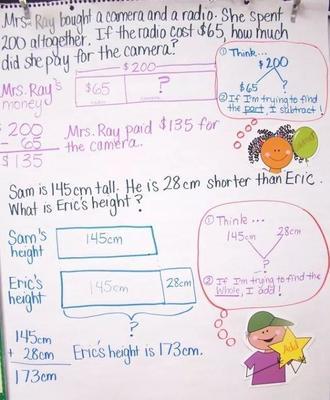 Mrs. Ray bought a camera and a radio. She spent
200 altogether. If the radio cost $65, how much
did she pay for the camera?
① Think...
$200
$65 ?
② If I'm trying to find
the part, I subtract!
$200
Mrs. Ray's
money
$65 ?
200
- 65
$135
Mrs. Ray paid $135 for
the camera.
Sam is 145cm tall. He is 28cm shorter than Eric.
What is Eric's height?
① Think...
145cm 28cm
?
② If I'm trying to find the
Whole, I add!
Sam's
height
145cm
Eric's
height
145cm 28cm
?
145cm
+ 28cm
173cm
Eric's height is 173cm.
Add